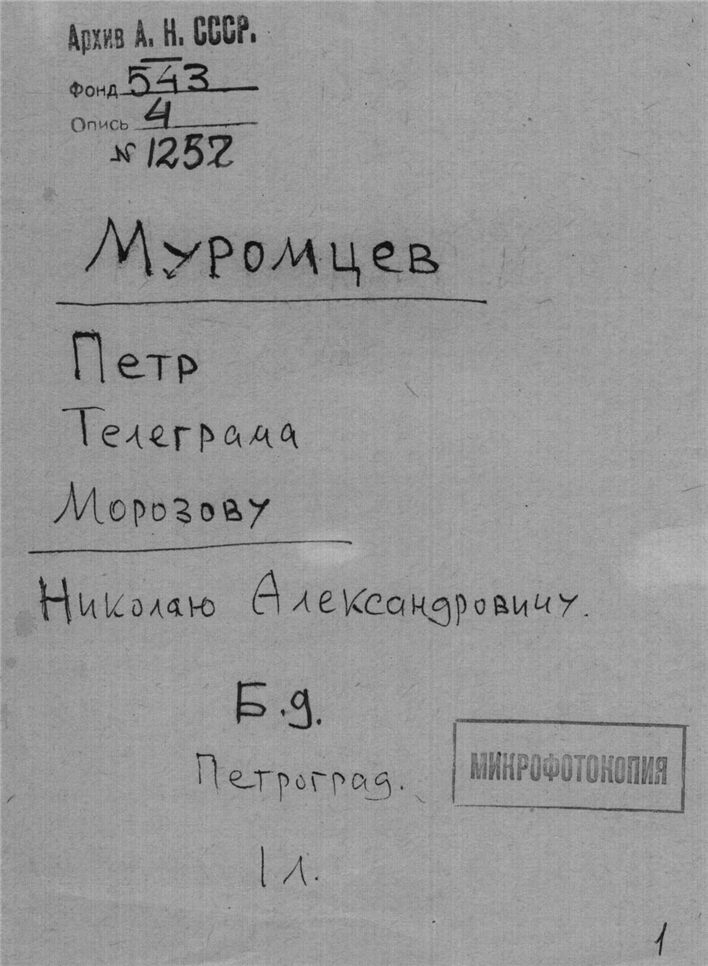 Архив А. Н. СССР.
Фонд 543
Опись 4
№ 1252
Муромцев
Петр
Телеграма
Морозову
Николаю Александровичу.
Б.д.
Петроград.
МИКРОФОТОКОПИЯ
1 л.
1